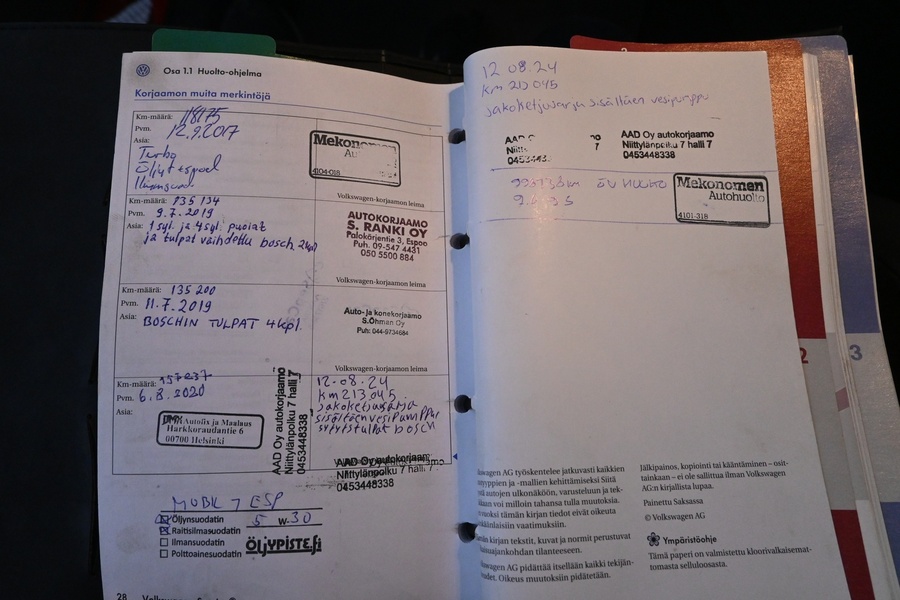 Osa 1.1 Huolto-ohjelma
Korjaamon muita merkintöjä
Km-määrä: 118175
Pvm. 12.9.2017
Asia:
Turbo
Öljyt
Mekonomen
4104-018
Volkswagen-korjaamon leima
Km-määrä: 135 134
Pvm. 9.7.2019
Asia: 1 syl. ja 4 syl. puolat
ja tulpat vaihdettu bosch 2kpl
AUTOKORJAAMO
S. RANKI OY
Palokärjentie 3, Espoo
Puh. 09-547 4431
050 5500 884
Volkswagen-korjaamon leima
Km-määrä: 135 200
Pvm. 11.7.2019
Asia: BOSCHIN TULPAT 4kpl.
Auto- ja konekorjaamo
S.Öhman Oy
Puh: 044-9734684
Volkswagen-korjaamon leima
Km-määrä: 157237
Pvm. 6.8.2020
Asia:
DMX Autofix ja Maalaus
Harkkoraudantie 6
00700 Helsinki
AAD Oy autokorjaamo
Niittylänpolku 7 halli 7
0453448338
12.08.24
km 213 045
jakoketjusarja
sisältäen vesipumppu
sytytstulpat bosch
AAD Oy autokorjaamo
Niittylänpolku 7 halli 7
0453448338
MOBIL 1 ESP
5 W-30
Öljynsuodatin
Raitisilmasuodatin
Ilmansuodatin
Polttoainesuodatin
ÖLJYPISTE.fi
28
12 08.24
km 213 045
jakoketjusarja sisältäen vesipumppu
AAD Oy autokorjaamo
Niittylänpolku 7 halli 7
0453448338
Mekonomen
Autohuolto
4101-318
wagen AG työskentelee jatkuvasti kaikkien
tyyppien ja -mallien kehittämiseksi Siitä
autojen ulkonäköön, varusteluun ja tek-
kaan voi milloin tahansa tulla muutoksia.
vuoksi tämän kirjan tiedot eivät oikeuta
vaatimuksiin.
kirjan tekstit, kuvat ja normit perustuvat
tilanteeseen.
wagen AG pidättää itsellään kaikki tekijän-
Oikeus muutoksiin pidätetään.
Jälkipainos, kopiointi tai kääntäminen – osit-
tainkaan – ei ole sallittua ilman Volkswagen
AG:n kirjallista lupaa.
Painettu Saksassa
© Volkswagen AG
Ympäristöohje
Tämä paperi on valmistettu kloorivalkaisemat-
tomasta selluloosasta.
2
3